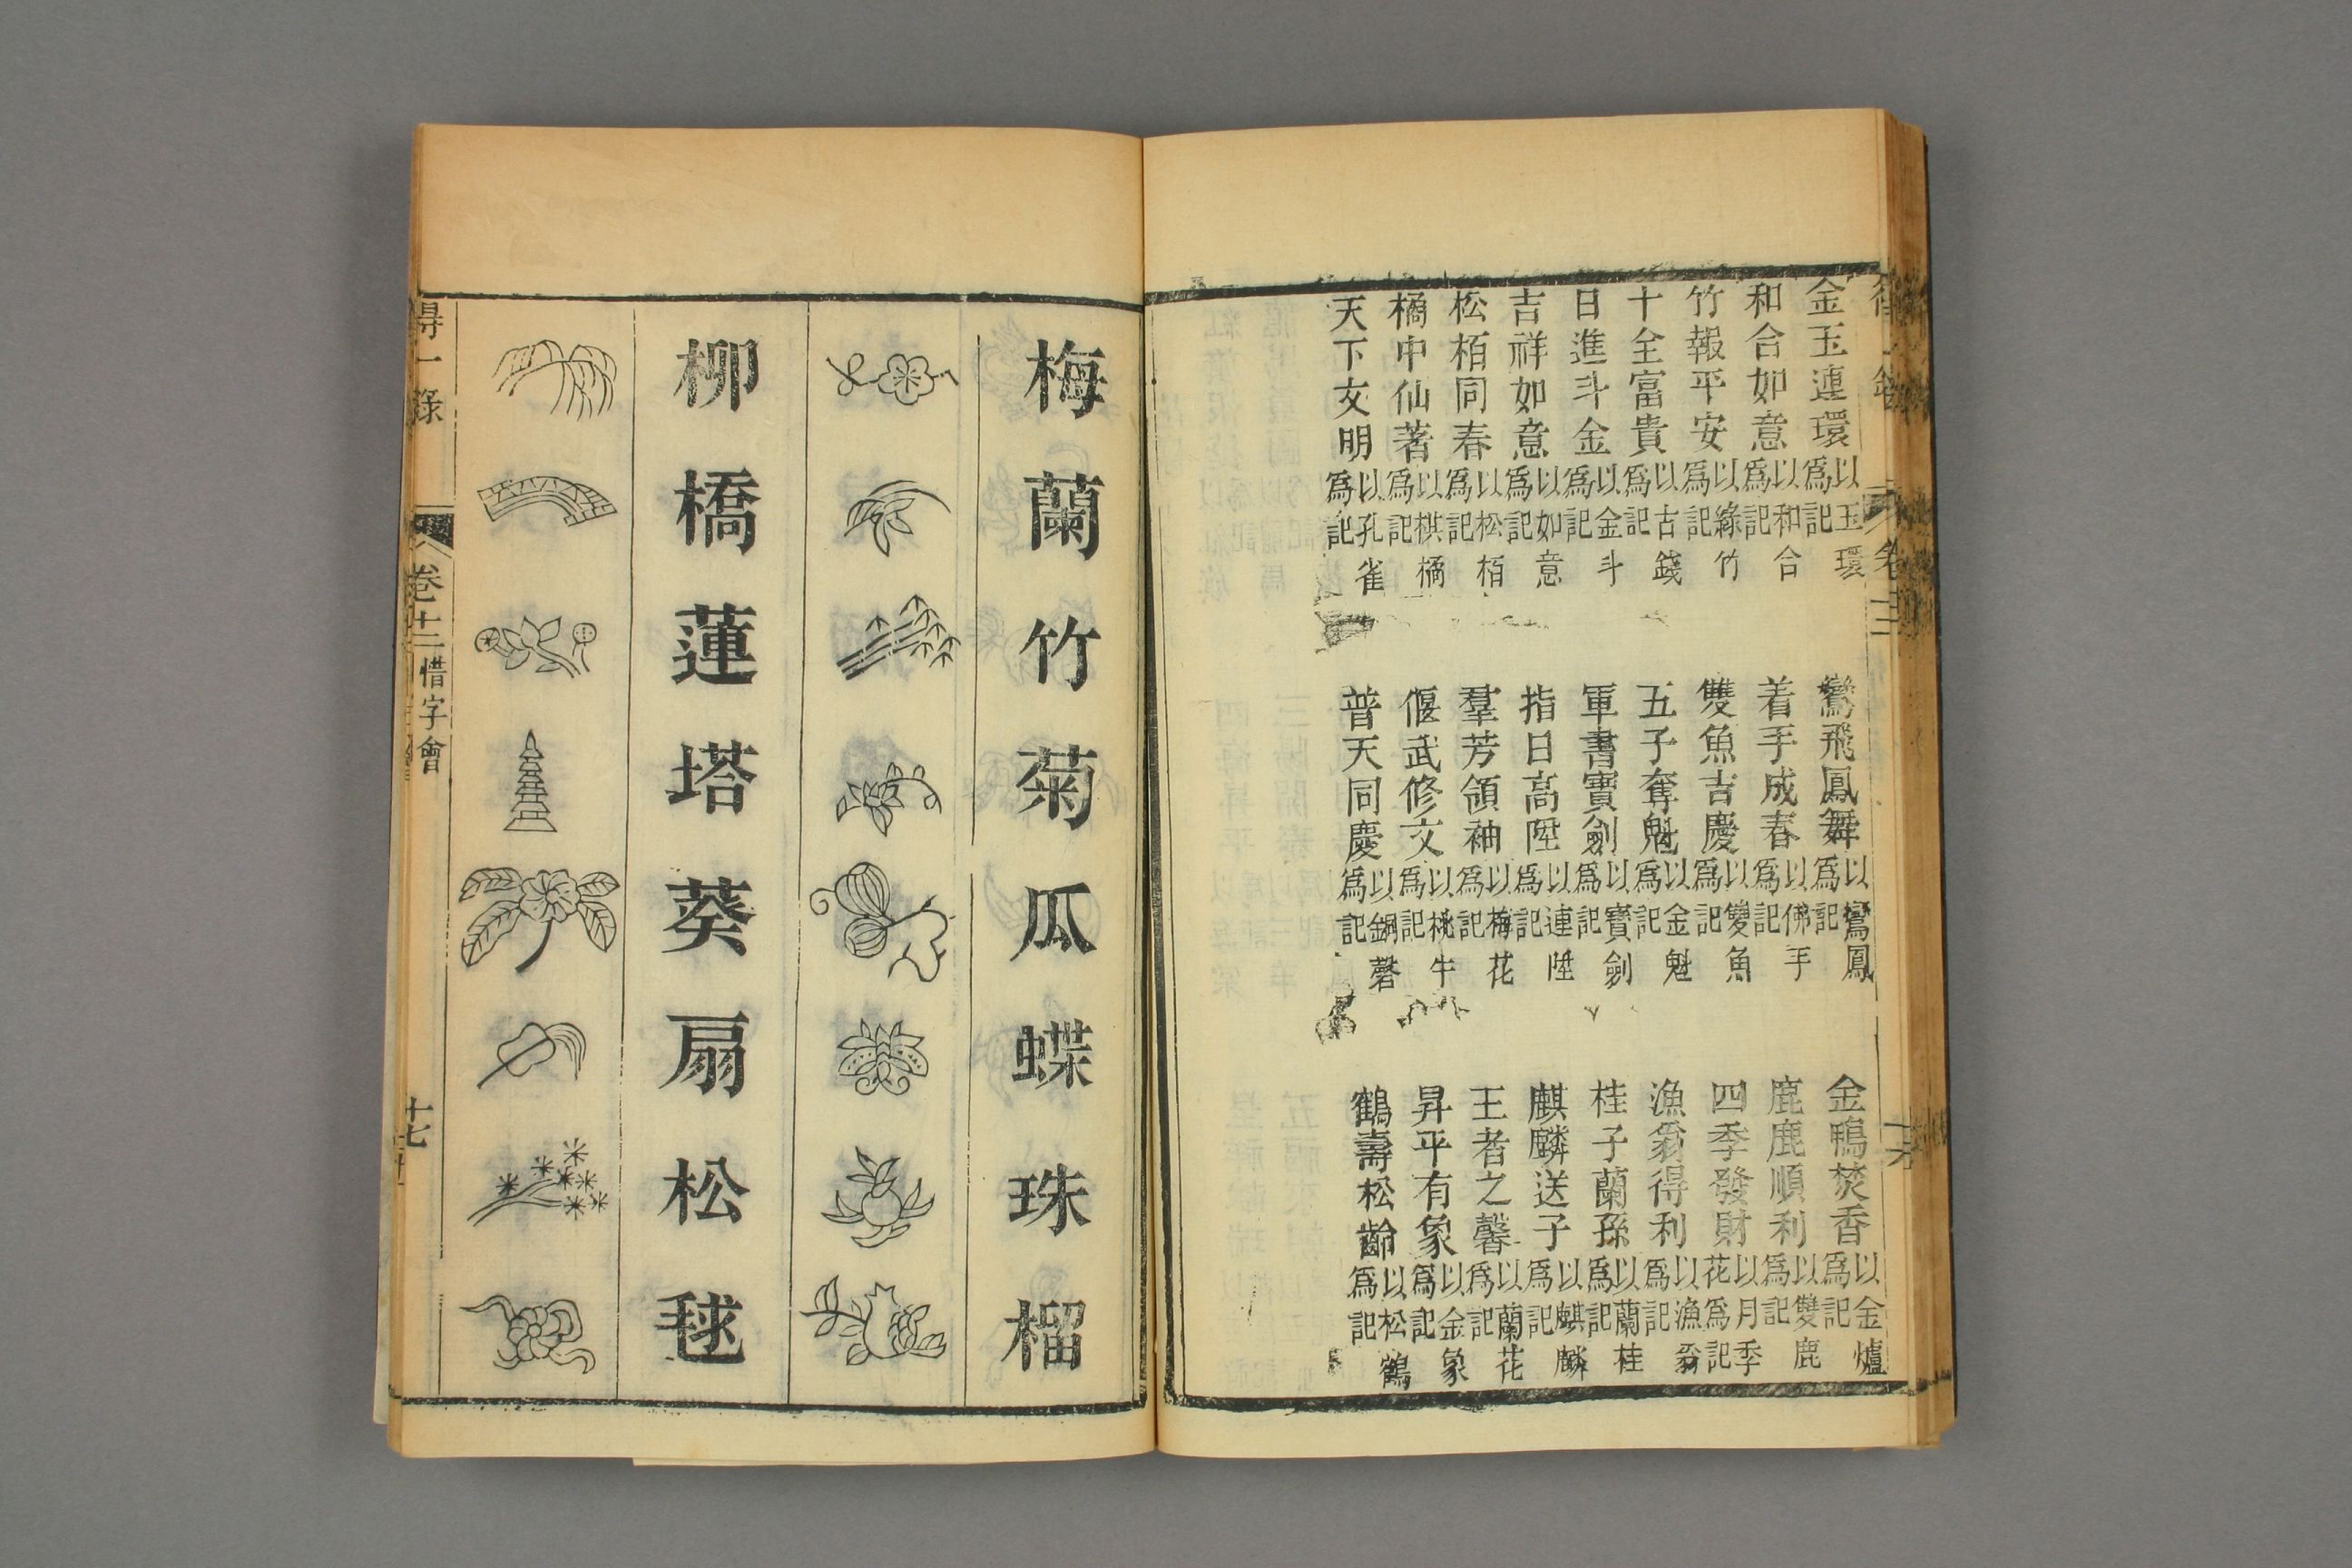 金玉連環以玉環爲記 鸞飛鳳舞以鸞鳳爲記 金鴨焚香以金爐爲記
和合如意以和合爲記 着手成春以佛手爲記 鹿鹿順利以雙鹿爲記
竹報平安以綠竹爲記 雙魚吉慶以雙魚爲記 四季發財以月季花爲記
十全富貴以古錢爲記 五子奪魁以金魁爲記 漁翁得利以漁翁爲記
日進斗金以金斗爲記 軍書寶劍以寶劍爲記 桂子蘭孫以蘭桂爲記
吉祥如意以如意爲記 指日高陞以連陞爲記 麒麟送子以麒麟爲記
松栢同春以松栢爲記 羣芳領袖以梅花爲記 王者之馨以蘭花爲記
橘中仙著以棋橘爲記 偃武修文以桃牛爲記 昇平有象以金象爲記
天下文明以孔雀爲記 普天同慶以銅磬爲記 鶴壽松齡以松鶴爲記
梅蘭竹菊瓜蝶珠榴
柳橋蓮塔葵扇松毬
得一錄 卷十二 惜字會 十七